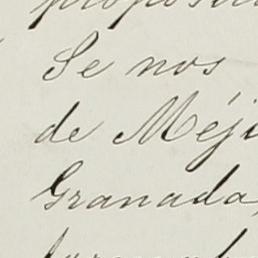 Se nos
de Méji
Granada,